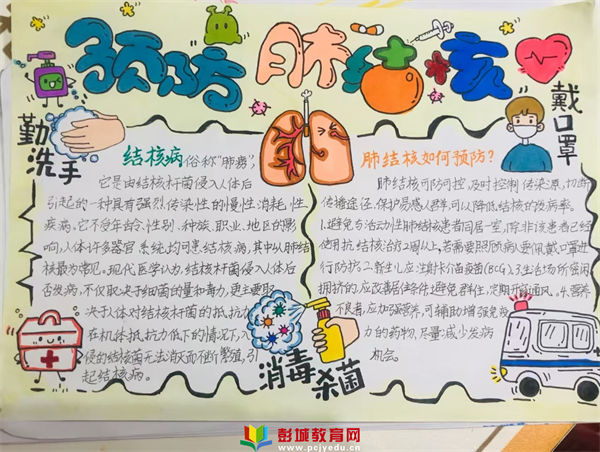 预防肺结核
勤洗手
戴口罩
结核病 俗称"肺痨",
它是由结核杆菌侵入人体后
引起的一种具有强烈传染性的慢性消耗性
疾病。它不受年龄、性别、种族、职业、地区的影
响,人体许多器官、系统均可患结核病,其中以肺结
核最为常见。现代医学认为,结核杆菌侵入人体后
否发病,不仅取决于细菌的量和毒力,更主要取
决于人体对结核杆菌的抵抗力
在机体抵抗力低下的情况下,入
侵的结核菌无法消灭而不断繁殖,引
起结核病。
肺结核如何预防?
肺结核可防可控,及时控制传染源,切断
传播途径,保护易感人群,可以降低结核的发病率。
1.避免与活动性肺结核患者同居一室,除非该患者已经
使用抗结核治疗2周以上,若需要照顾病人要佩戴口罩进
行防护。2.新生儿应注射卡介苗疫苗(BCG)。3.生活场所使用
拥挤的应改善居住条件避免群住,定期开窗通风。4.营养
不良者,应加强营养,可辅助增强免疫
力的药物,尽量减少发病
机会。
消毒
杀菌
彭城教育网
www.pcjyedu.cn